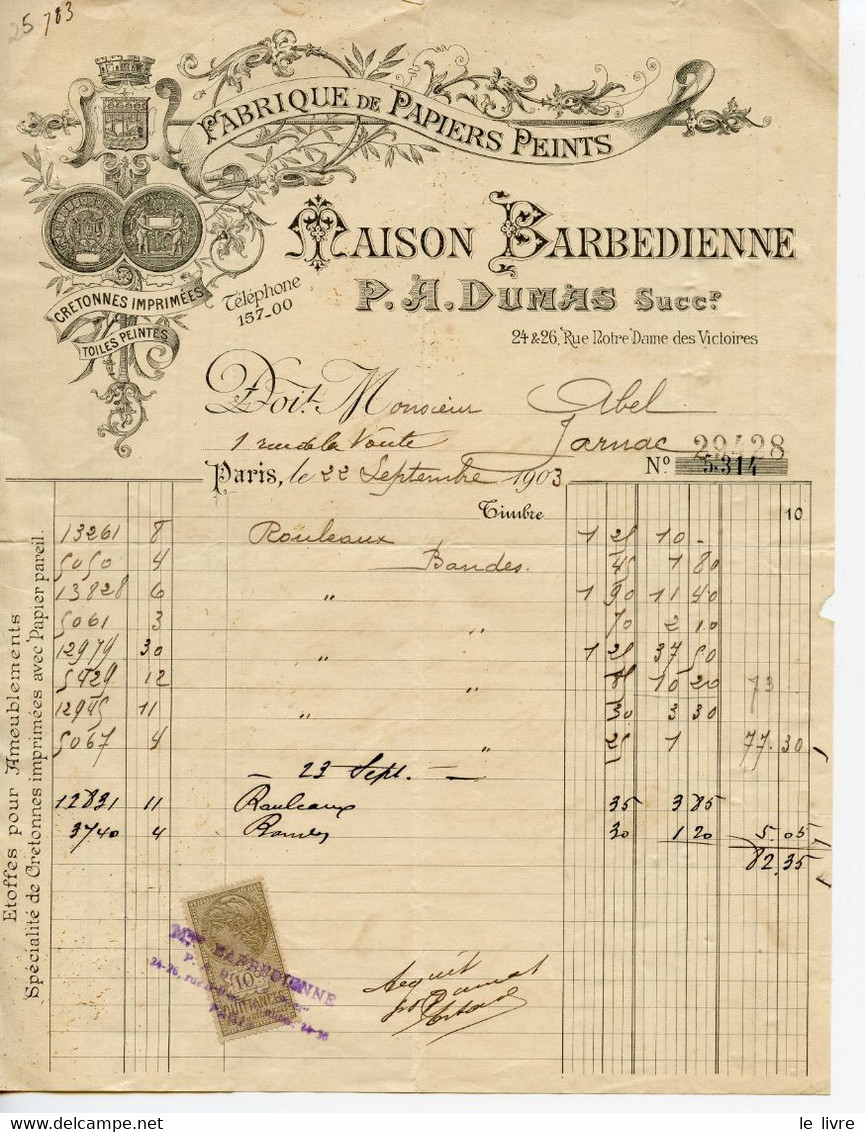 25 783
FABRIQUE DE PAPIERS PEINTS
MAISON BARBEDIENNE
P. A. DUMAS Succr.
CRETONNES IMPRIMÉES
TOILES PEINTES
Téléphone
157-00
24 & 26, Rue Notre Dame des Victoires
Doit Monsieur Abel
1 rue de la Voute Jarnac 29428
Paris, le 22 Septembre 1903 No 5314
Timbre 10
13261 8 Rouleaux 1 25 10 -
5050 4 Bandes. 45 1 80
13828 6 " 1 90 11 40
5061 3 " 70 2 10
12979 30 " 1 25 37 50
5429 12 " 85 10 20 73
12945 11 " 30 3 30
5067 4 " 25 1 77.30
- 23 Sept. -
12831 11 Rouleaux 35 3 85
3740 4 Bandes 30 1 20 5.05
82.35
Etoffes pour Ameublements
Spécialité de Cretonnes imprimées avec Papier pareil.
10
QUITTANCES
Mon BARBEDIENNE
24-26, rue
Acquit
Dumas
le livre